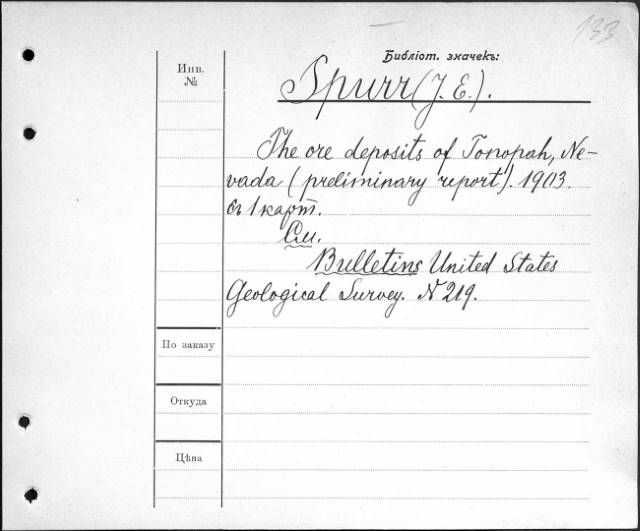 133
Библіот. значекъ:
Инв.
№
Spurr (J. E.).
The ore deposits of Tonopah, Ne-
vada (preliminary report). 1903.
съ 1 карт.
См.
Bulletins United States
Geological Survey. N 219.
По заказу
Откуда
Цѣна